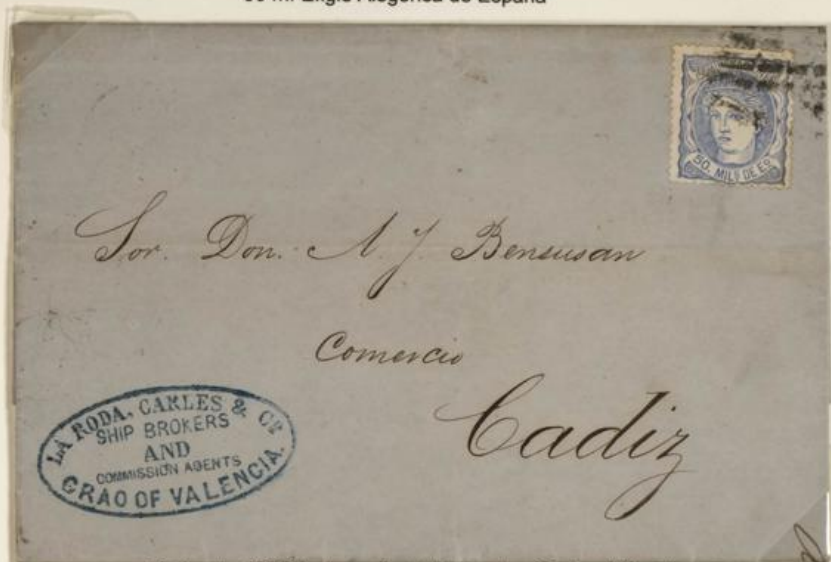 50. MILS DE Eo
Sor. Don. A. J. Bensusan
Comercio
Cadiz
LA RODA, CARLES & Co
SHIP BROKERS
AND
COMMISSION AGENTS
GRAO OF VALENCIA.